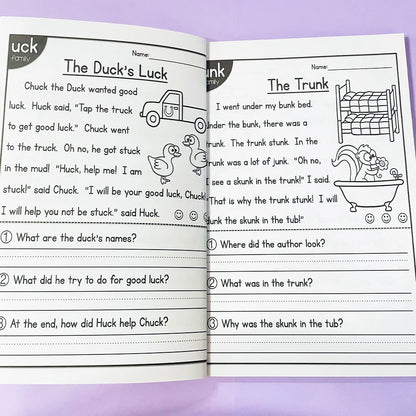 uck
Family
Name:
The Duck's Luck
Chuck the Duck wanted good
luck. Huck said, "Tap the truck
to get good luck." Chuck went
to the truck. Oh no, he got stuck
in the mud! "Huck, help me! I am
stuck!" said Chuck. "I will be your good luck, Chuck!
I will help you not be stuck." said Huck.
1 What are the duck's names?
2 What did he try to do for good luck?
3 At the end, how did Huck help Chuck?
unk
Family
Name:
The Trunk
I went under my bunk bed.
Under the bunk, there was a
trunk. The trunk stunk. In the
trunk was a lot of junk. "Oh no,
I see a skunk in the trunk!" I said.
"That is why the trunk stunk! I will
dunk the skunk in the tub!"
1 Where did the author look?
2 What was in the trunk?
3 Why was the skunk in the tub?